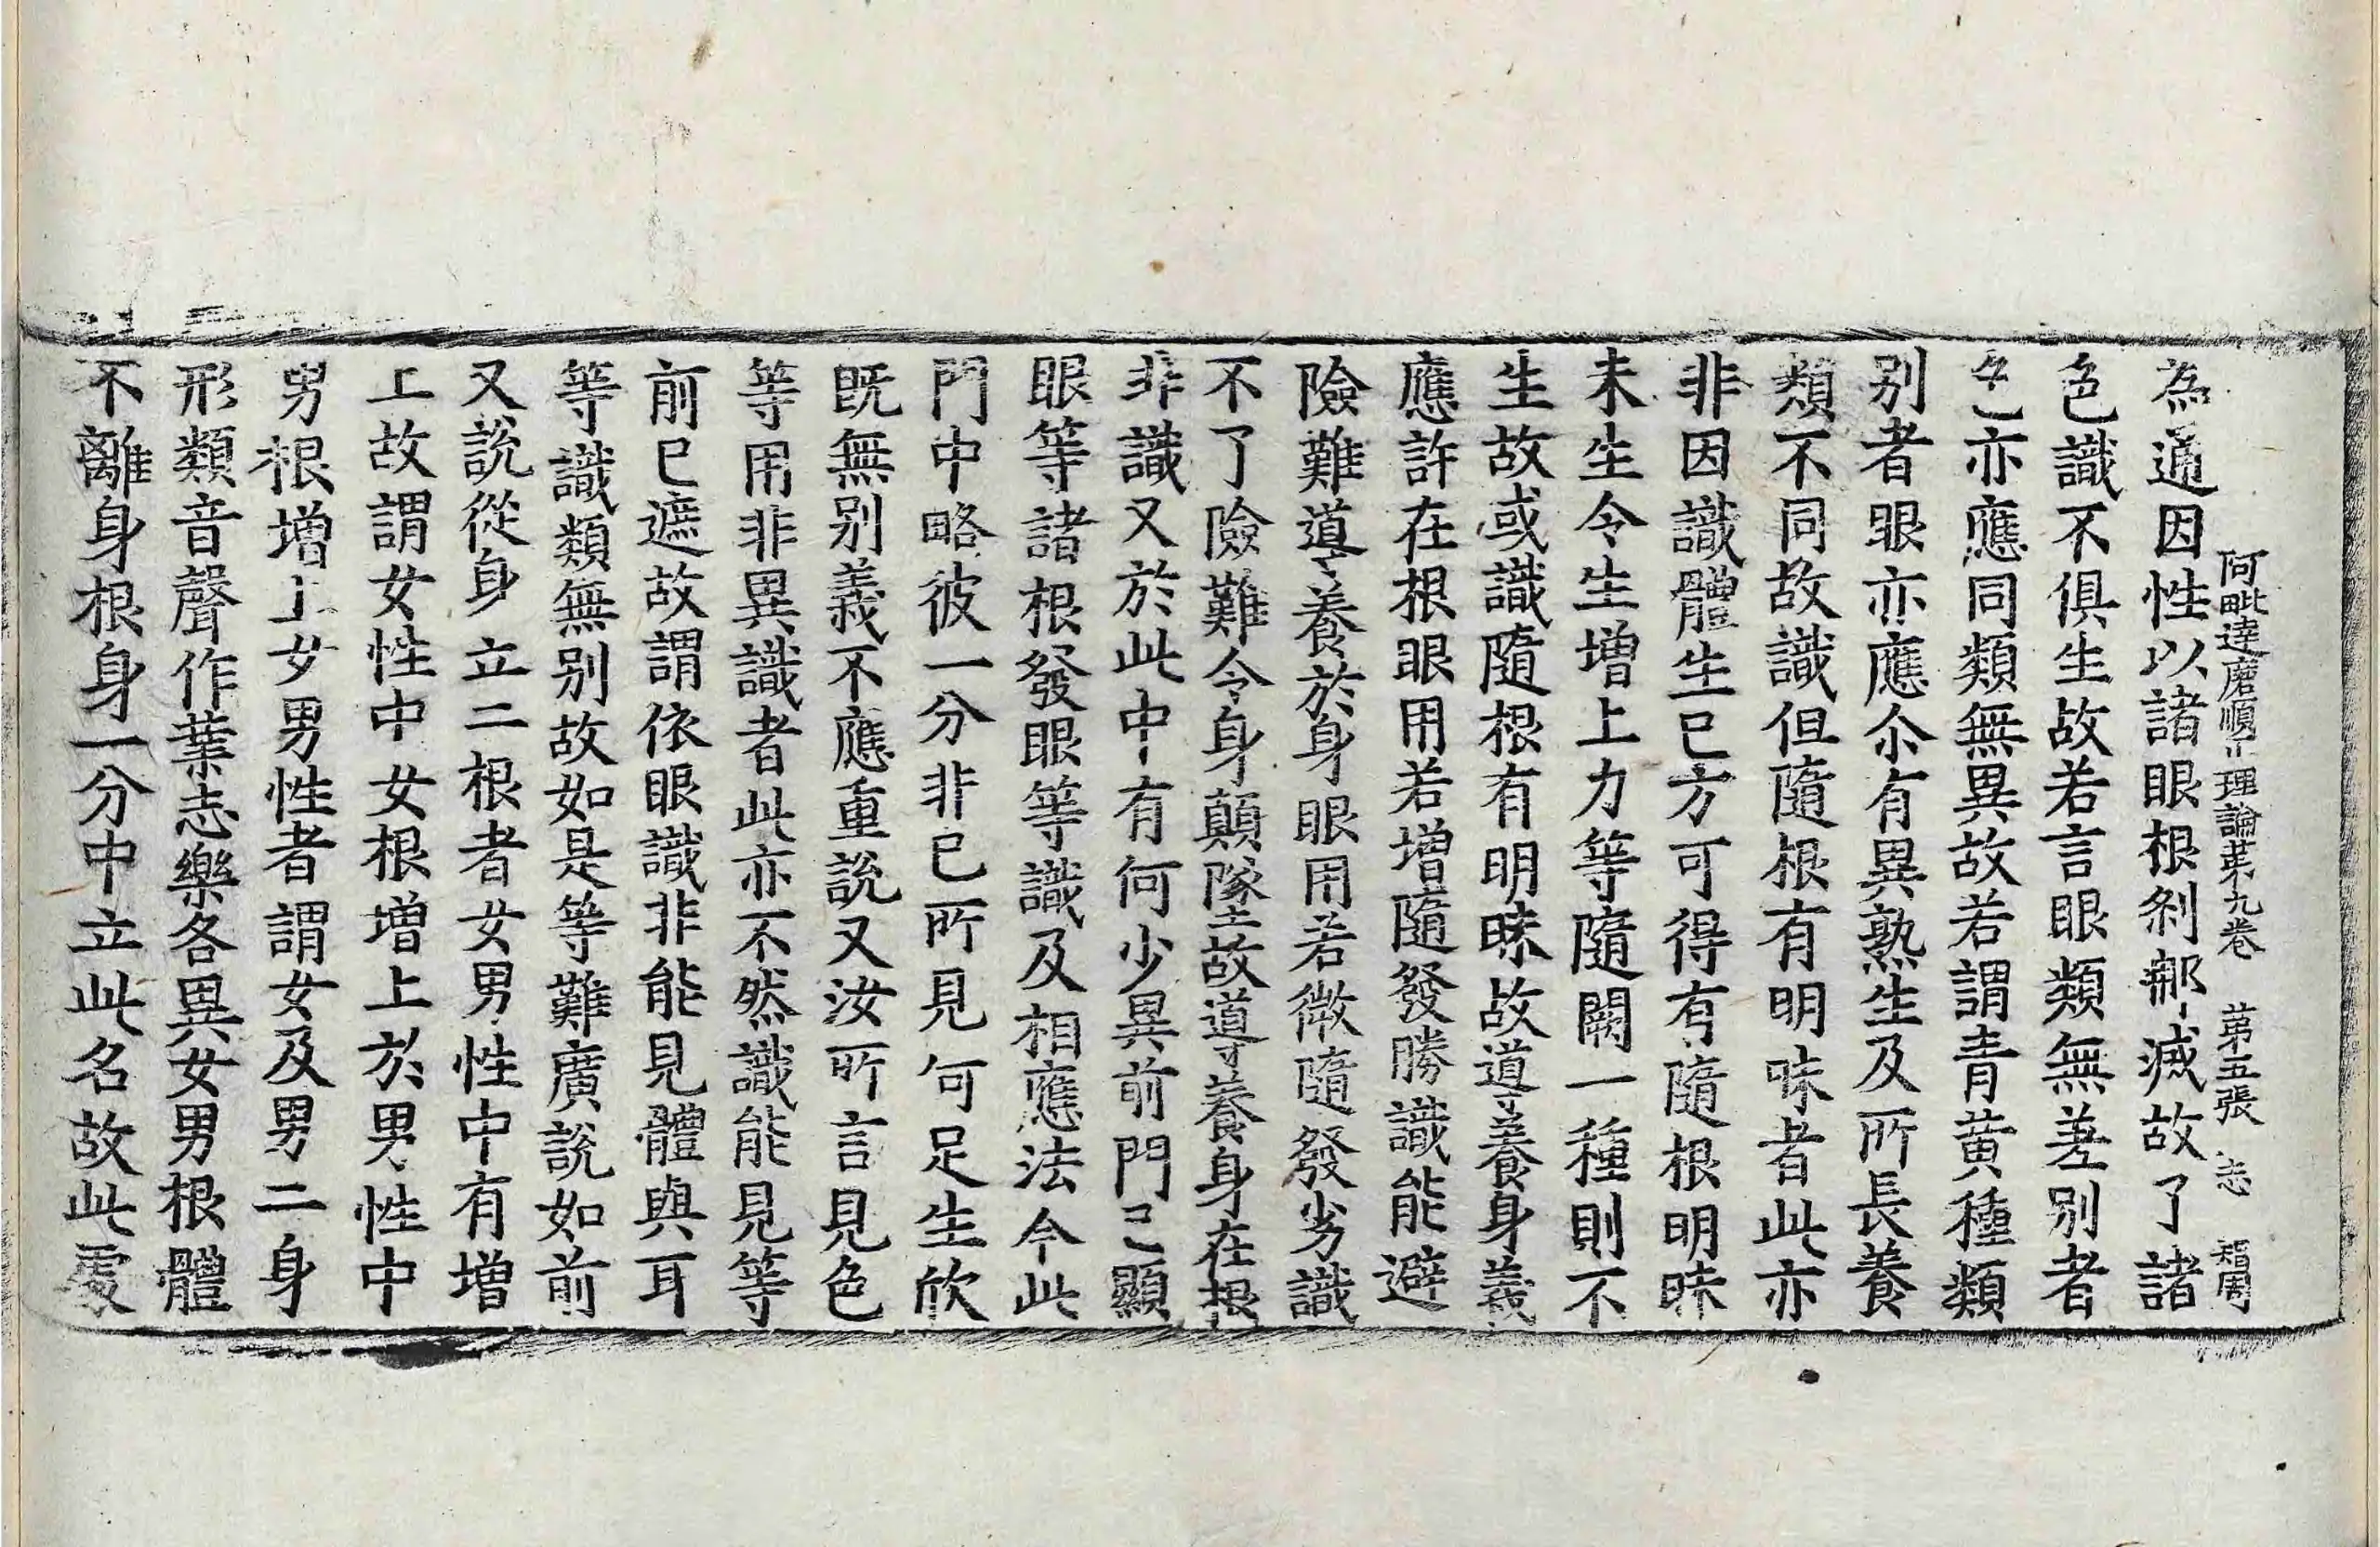 阿毗達磨順正理論苐九卷 苐五張 志 智周
為通因性以諸眼根剎那滅故了諸
色識不俱生故若言眼類無差別者
色亦應同類無異故若謂青黃種類
別者眼亦應尒有異熟生及所長養
類不同故識但隨根有明昧者此亦
非因識體生已方可得有隨根明昧
未生令生增上力等隨闕一種則不
生故或識隨根有明昧故導養身義
應許在根眼用若增隨發勝識能避
險難導養於身眼用若微隨發劣識
不了險難令身顛墜故導養身在根
非識又於此中有何少異前門已顯
眼等諸根發眼等識及相應法今此
門中略彼一分非已所見何足生欣
旣無別義不應重說又汝所言見色
等用非異識者此亦不然識能見等
前已遮故謂依眼識非能見體與耳
等識類無別故如是等難廣說如前
又說從身立二根者女男性中有增
上故謂女性中女根增上於男性中
男根增上女男性者謂女及男二身
形類音聲作業志樂各異女男根體
不離身根身一分中立此名故此處